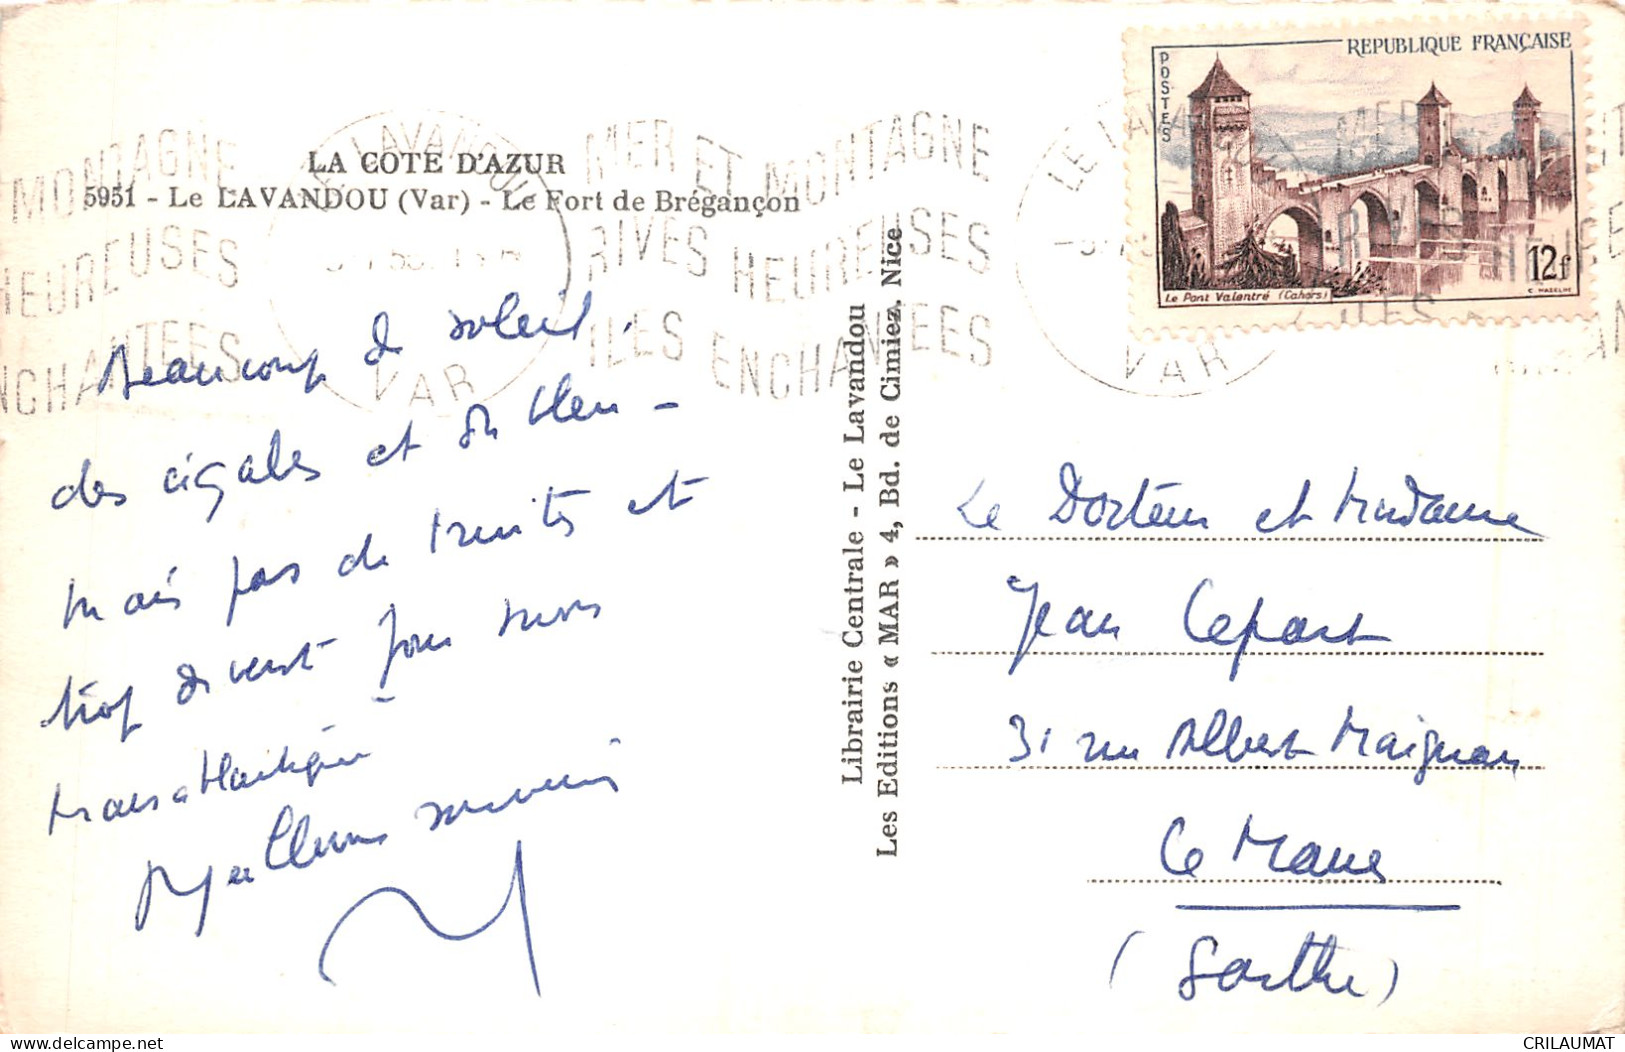 LA COTE D'AZUR
5951 - Le LAVANDOU (Var) - Le Fort de Brégançon
LE LAVANDOU
VAR
MER ET MONTAGNE
RIVES HEUREUSES
ILES ENCHANTEES
POSTES
REPUBLIQUE FRANÇAISE
12f
Le Pont Valentré (Cahors)
C. MAZELIN
Beaucoup de soleil,
des cigales et du bleu -
mais pas de truites et
trop de vent pour nous
Meilleurs souvenirs
Librairie Centrale - Le Lavandou
Les Editions « MAR » 4, Bd. de Cimiez. Nice
Le Docteur et Madame
Jean Lepart
31 rue Albert Maignan
Le Mans
(Sarthe)
delcampe.net
CRILAUMAT